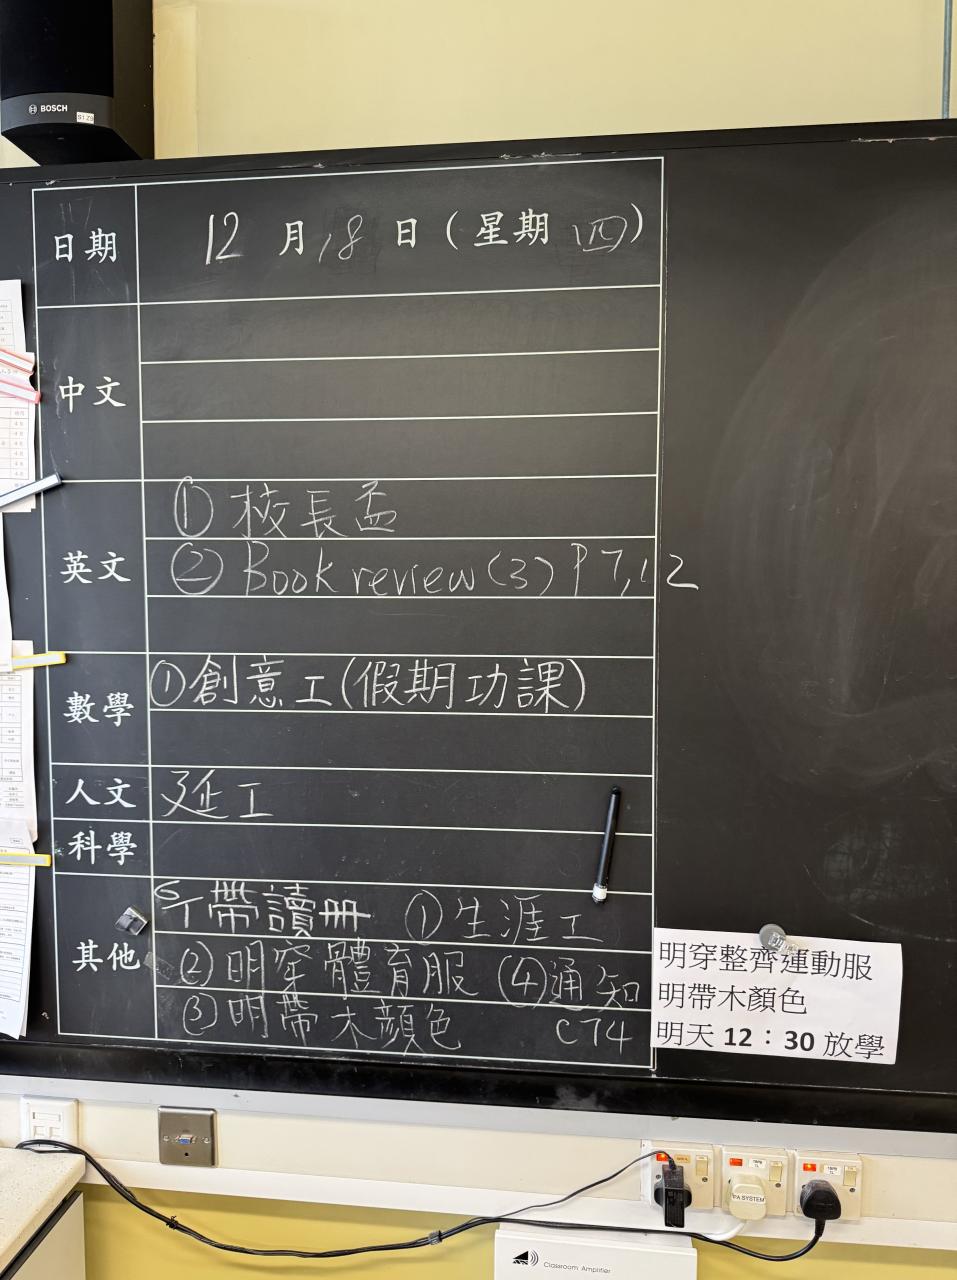 BOSCH
S1 Z9
日期 12月18日(星期四)
中文
英文
① 校長盃
② Book review (3) P7,12
數學
① 創意工(假期功課)
人文 延工
科學
其他
帶讀冊 ① 生涯工
② 明穿體育服 ④ 通知
③ 明帶木顏色 C74
明穿整齊運動服
明帶木顏色
明天 12：30 放學
PA SYSTEM
Classroom Amplifier